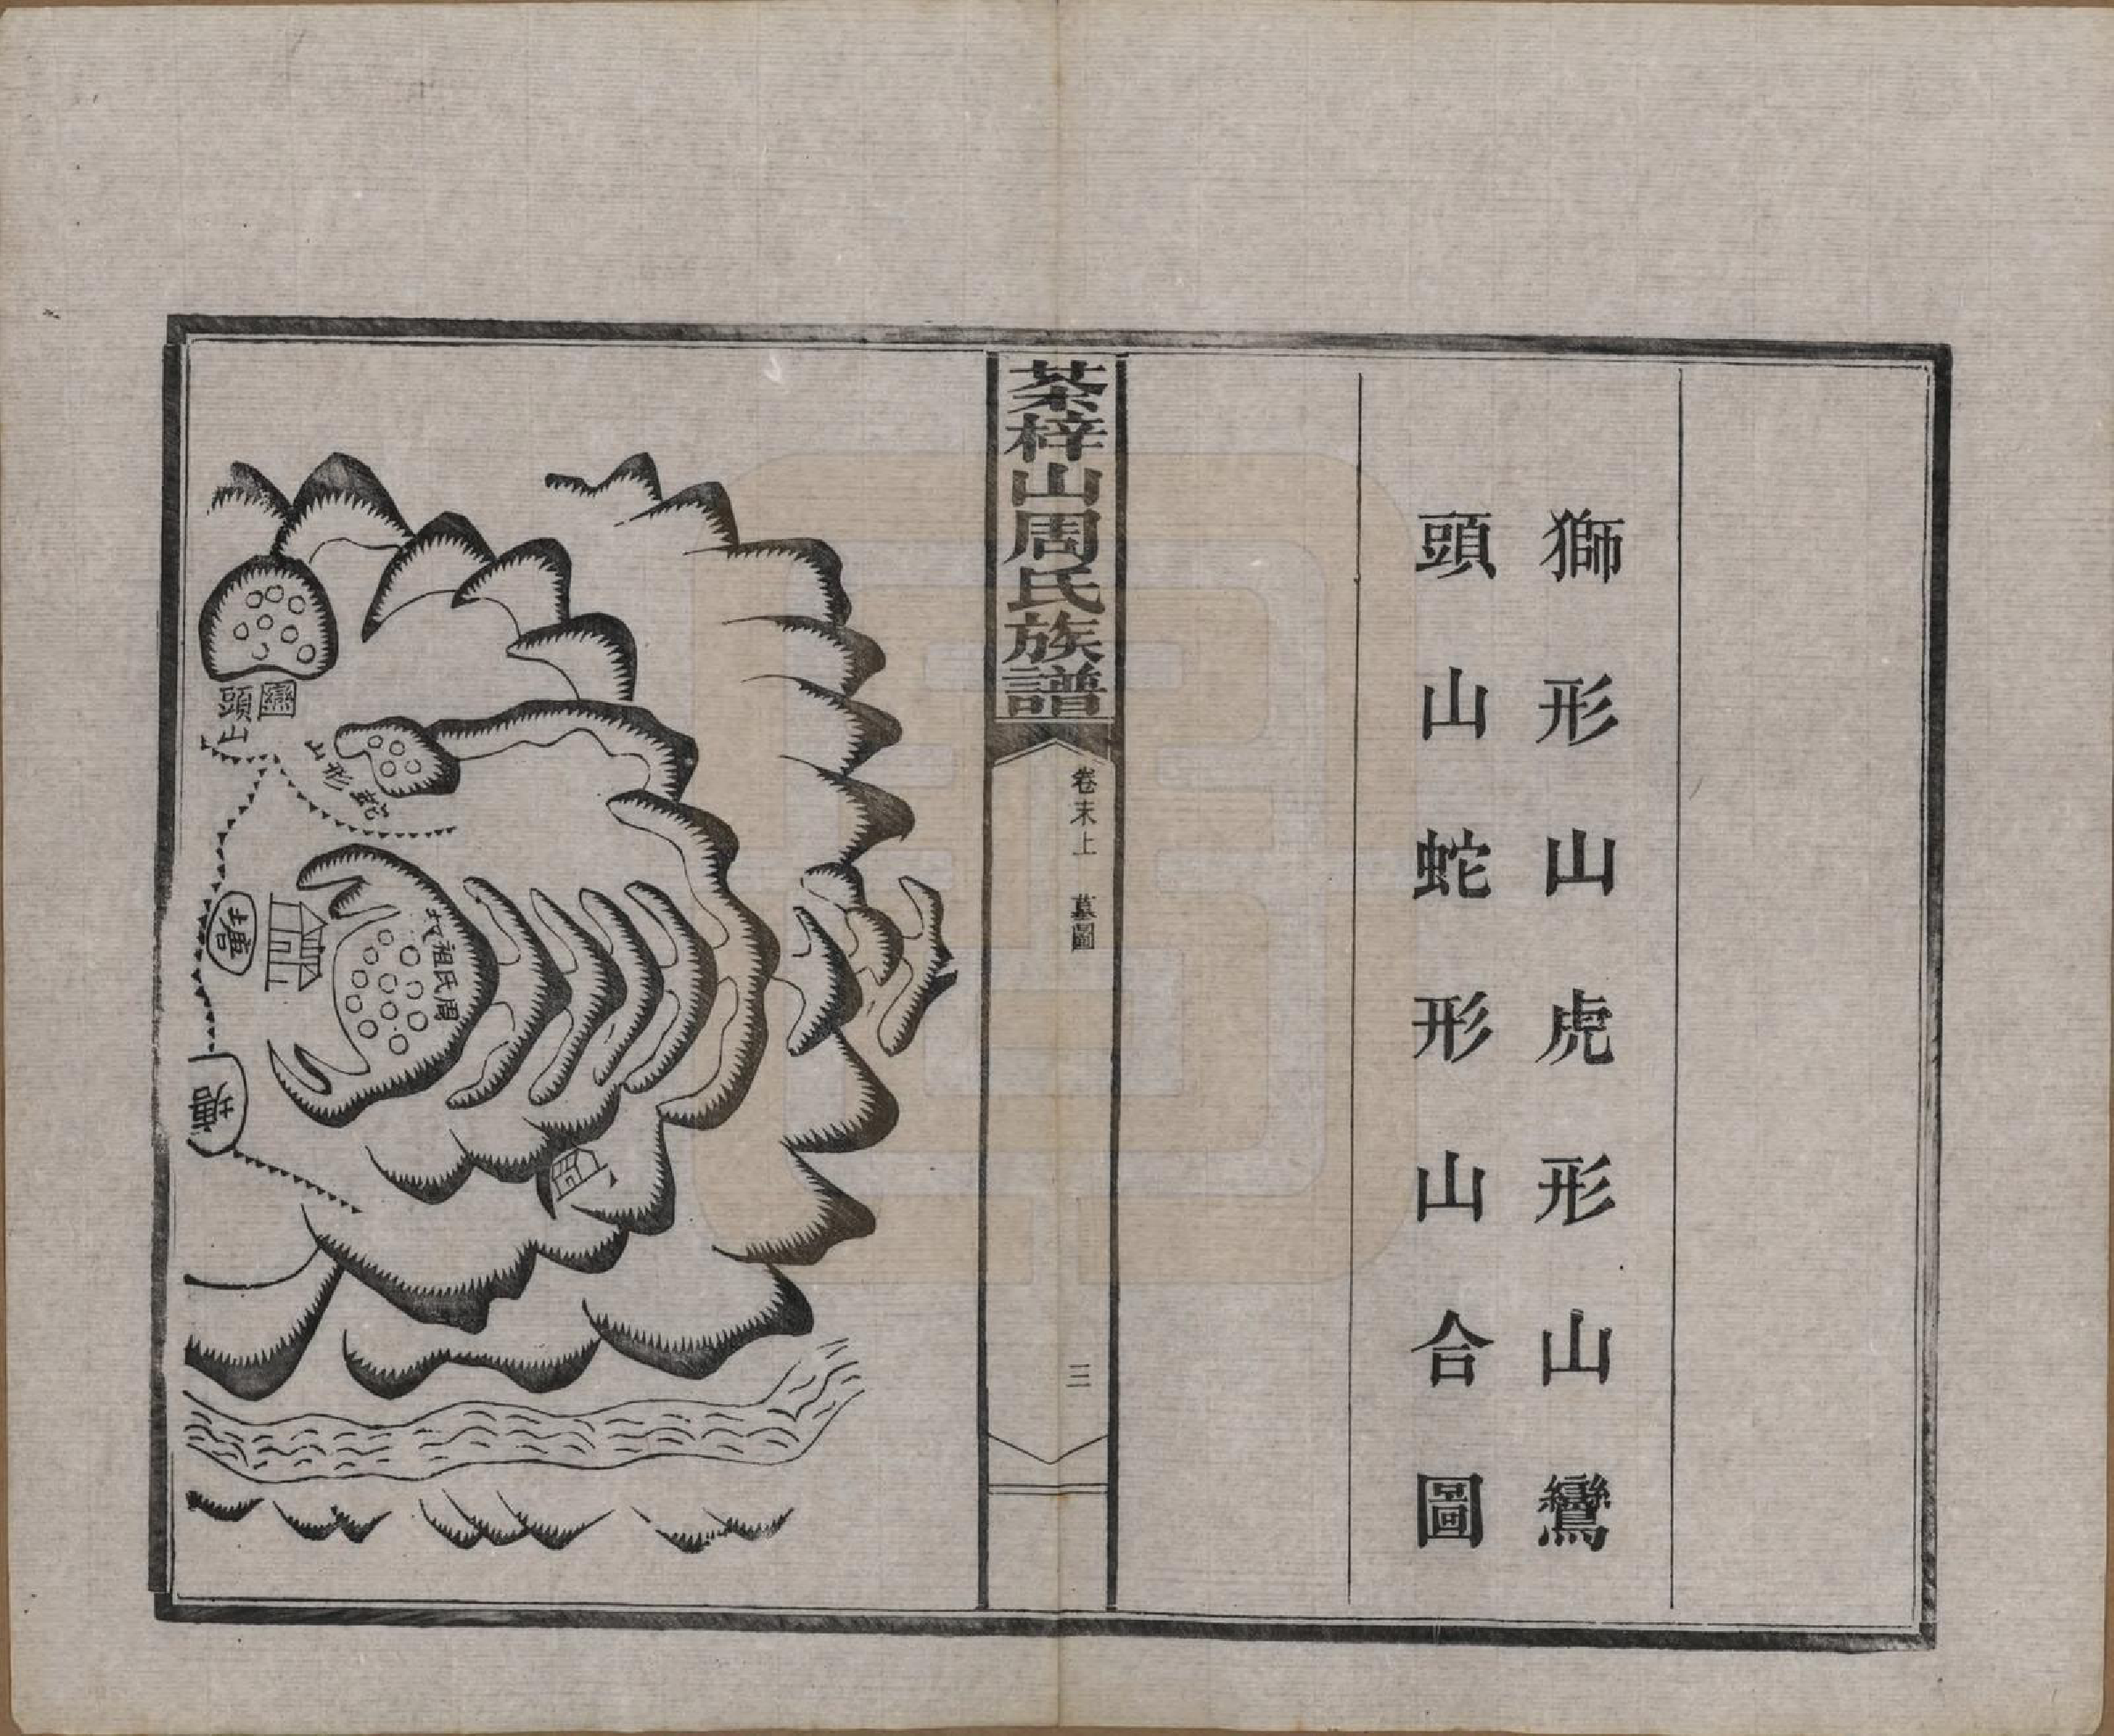 獅形山虎形山鸞
頭山蛇形山合圖
茶梓山周氏族譜
卷末上 墓圖
三
頭山
蛇形山
周氏祖
塘
塘